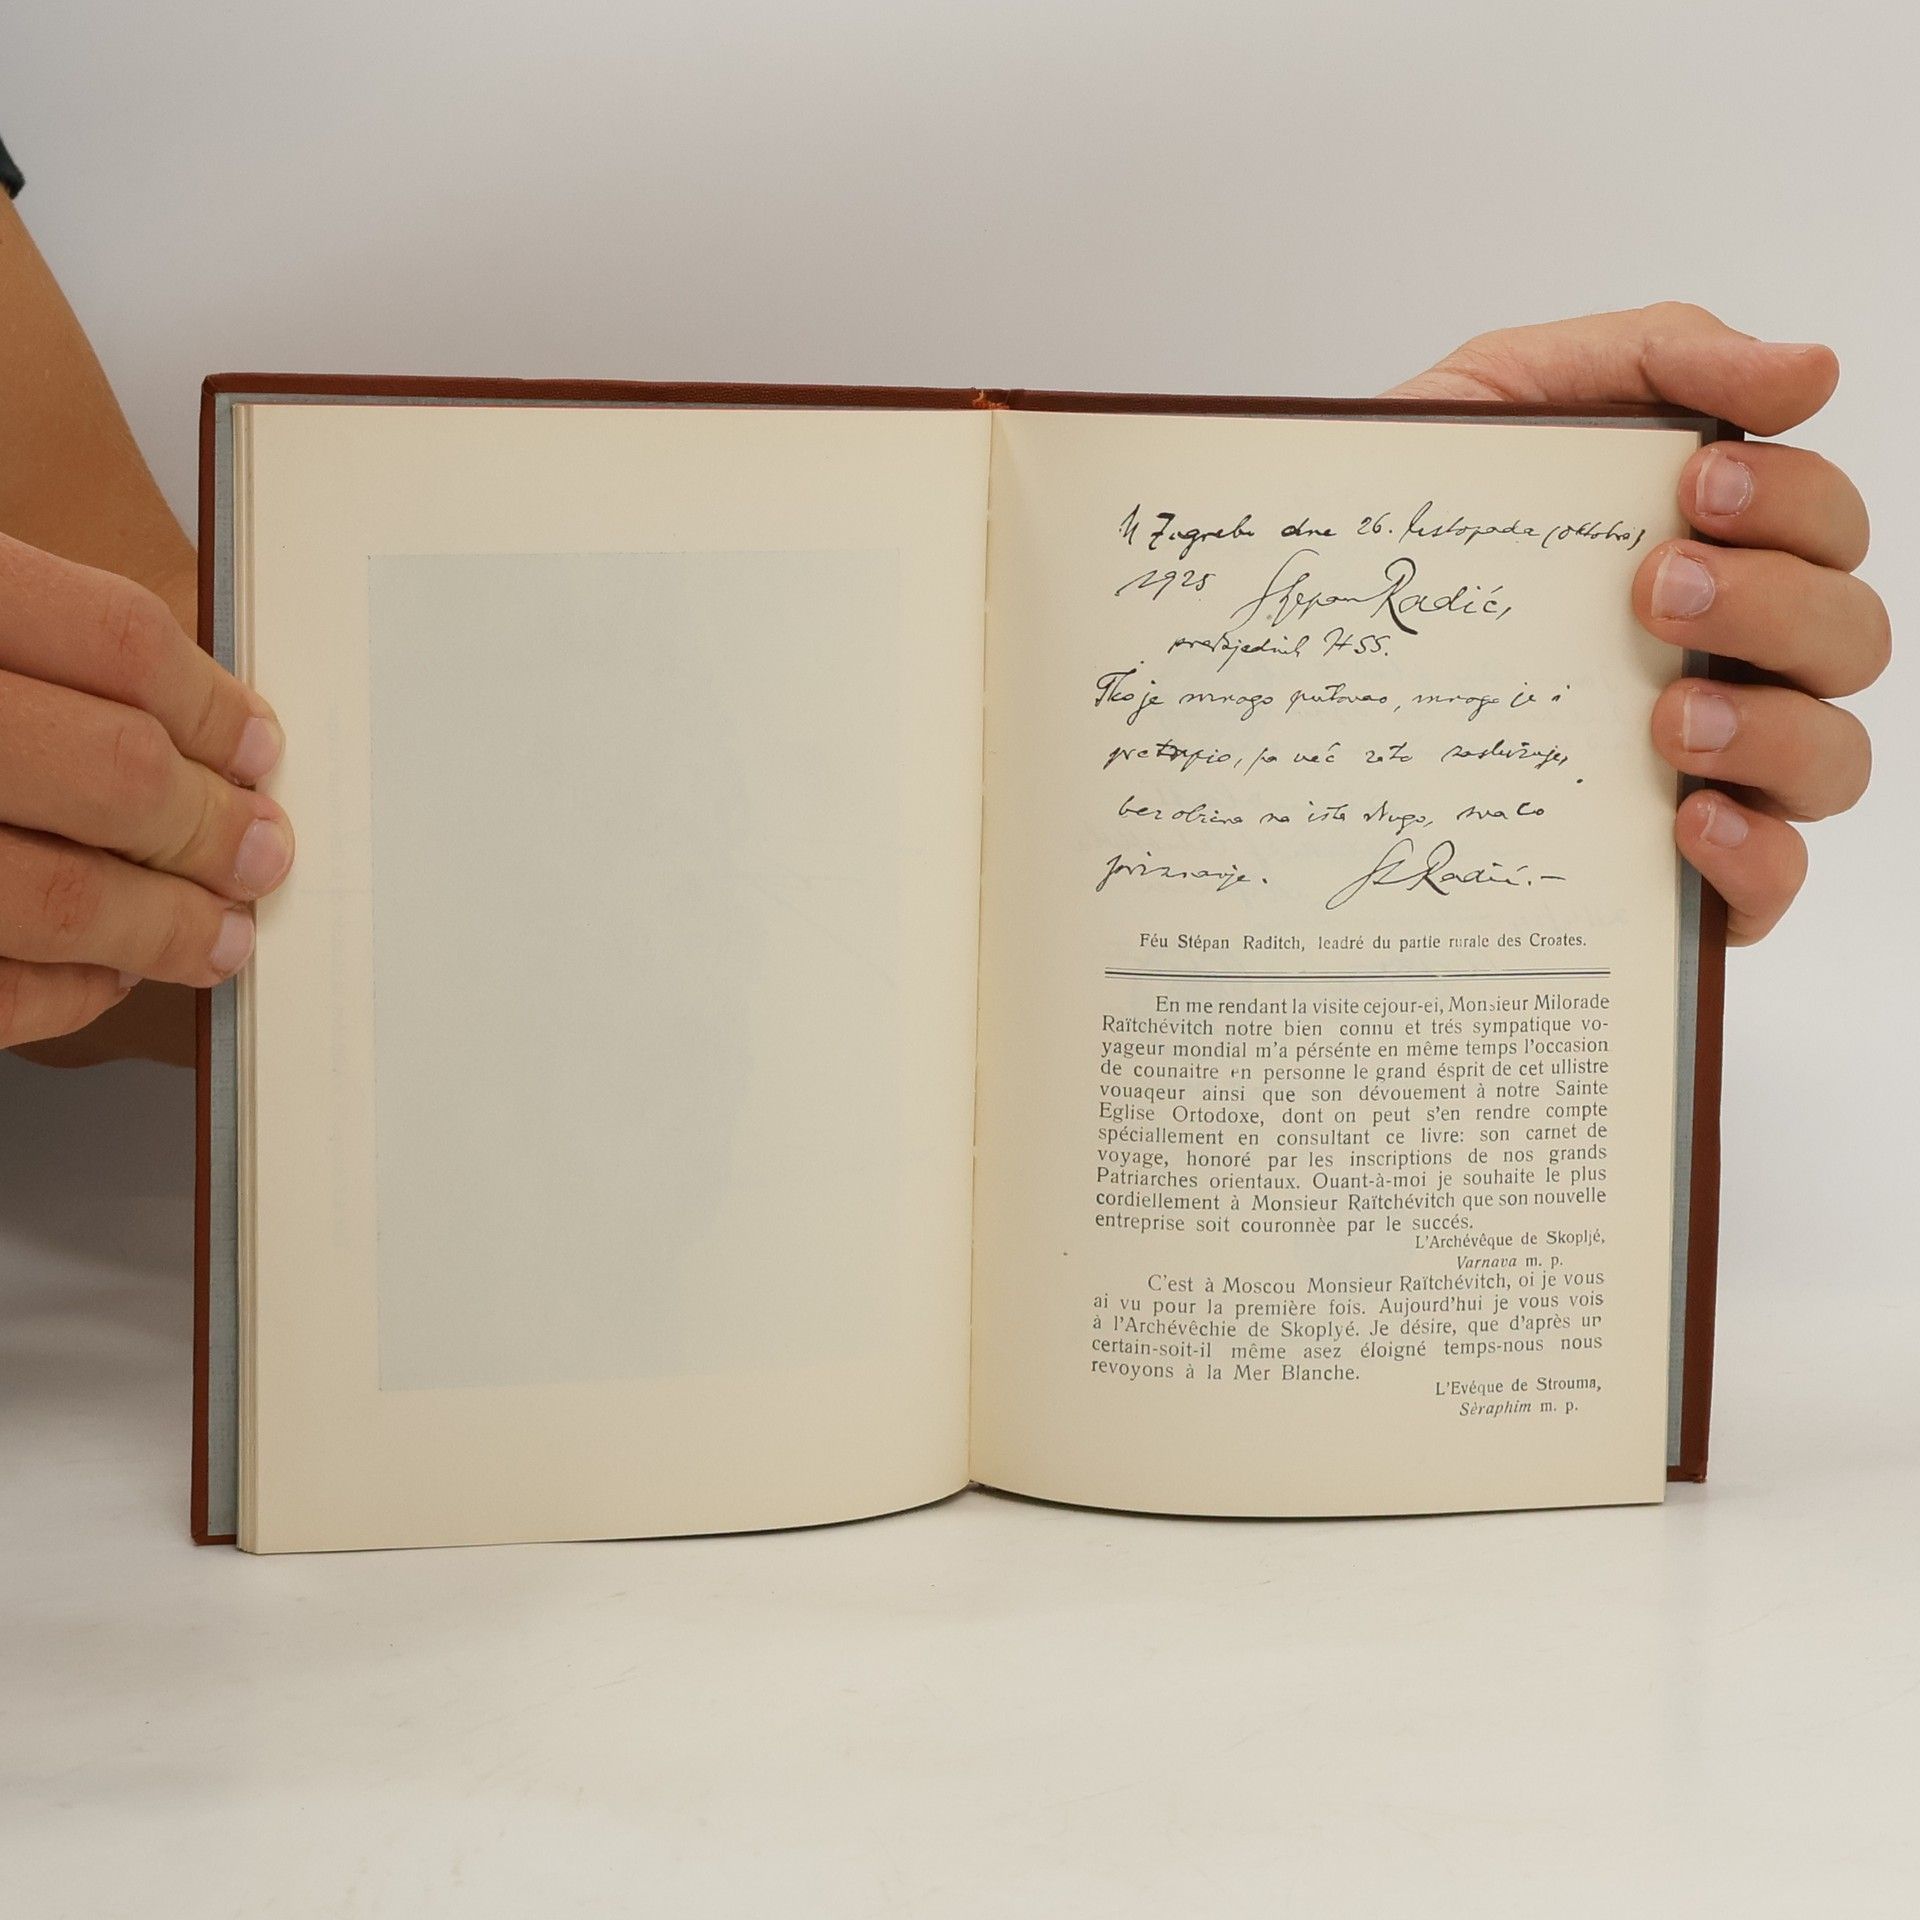 U Zagrebu dne 26. listopada (oktobra)
1925 Stjepan Radić,
predsjednik HSS.
Tko je mnogo putovao, mnogo je i
pretrpio, pa već zato zaslužuje,
bez obzira na išta drugo, svako
priznanje. St Radić.—
Féu Stépan Raditch, leadré du partie rurale des Croates.
En me rendant la visite cejour-ei, Monsieur Milorade
Raïtchévitch notre bien connu et trés sympatique vo-
yageur mondial m'a pérsénte en même temps l'occasion
de counaitre en personne le grand ésprit de cet ullistre
vouaqeur ainsi que son dévouement à notre Sainte
Eglise Ortodoxe, dont on peut s'en rendre compte
spéciallement en consultant ce livre: son carnet de
voyage, honoré par les inscriptions de nos grands
Patriarches orientaux. Ouant-à-moi je souhaite le plus
cordiellement à Monsieur Raïtchévitch que son nouvelle
entreprise soit couronnèe par le succés.
L'Archévêque de Skopljé,
Varnava m. p.
C'est à Moscou Monsieur Raïtchévitch, oi je vous
ai vu pour la première fois. Aujourd'hui je vous vois
à l'Archévêchie de Skoplyé. Je désire, que d'après un
certain-soit-il même asez éloigné temps-nous nous
revoyons à la Mer Blanche.
L'Evéque de Strouma,
Sèraphim m. p.